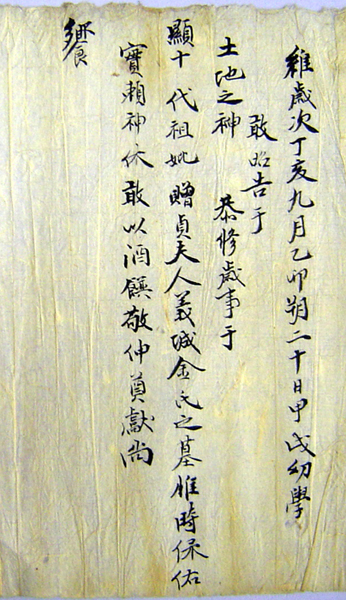 維歲次丁亥九月乙卯朔二十日甲戌幼學
敢昭告于
土地之神 恭修歲事于
顯十代祖妣贈貞夫人義城金氏之墓惟時保佑
實賴神休敢以酒饌敬伸奠獻尚
饗